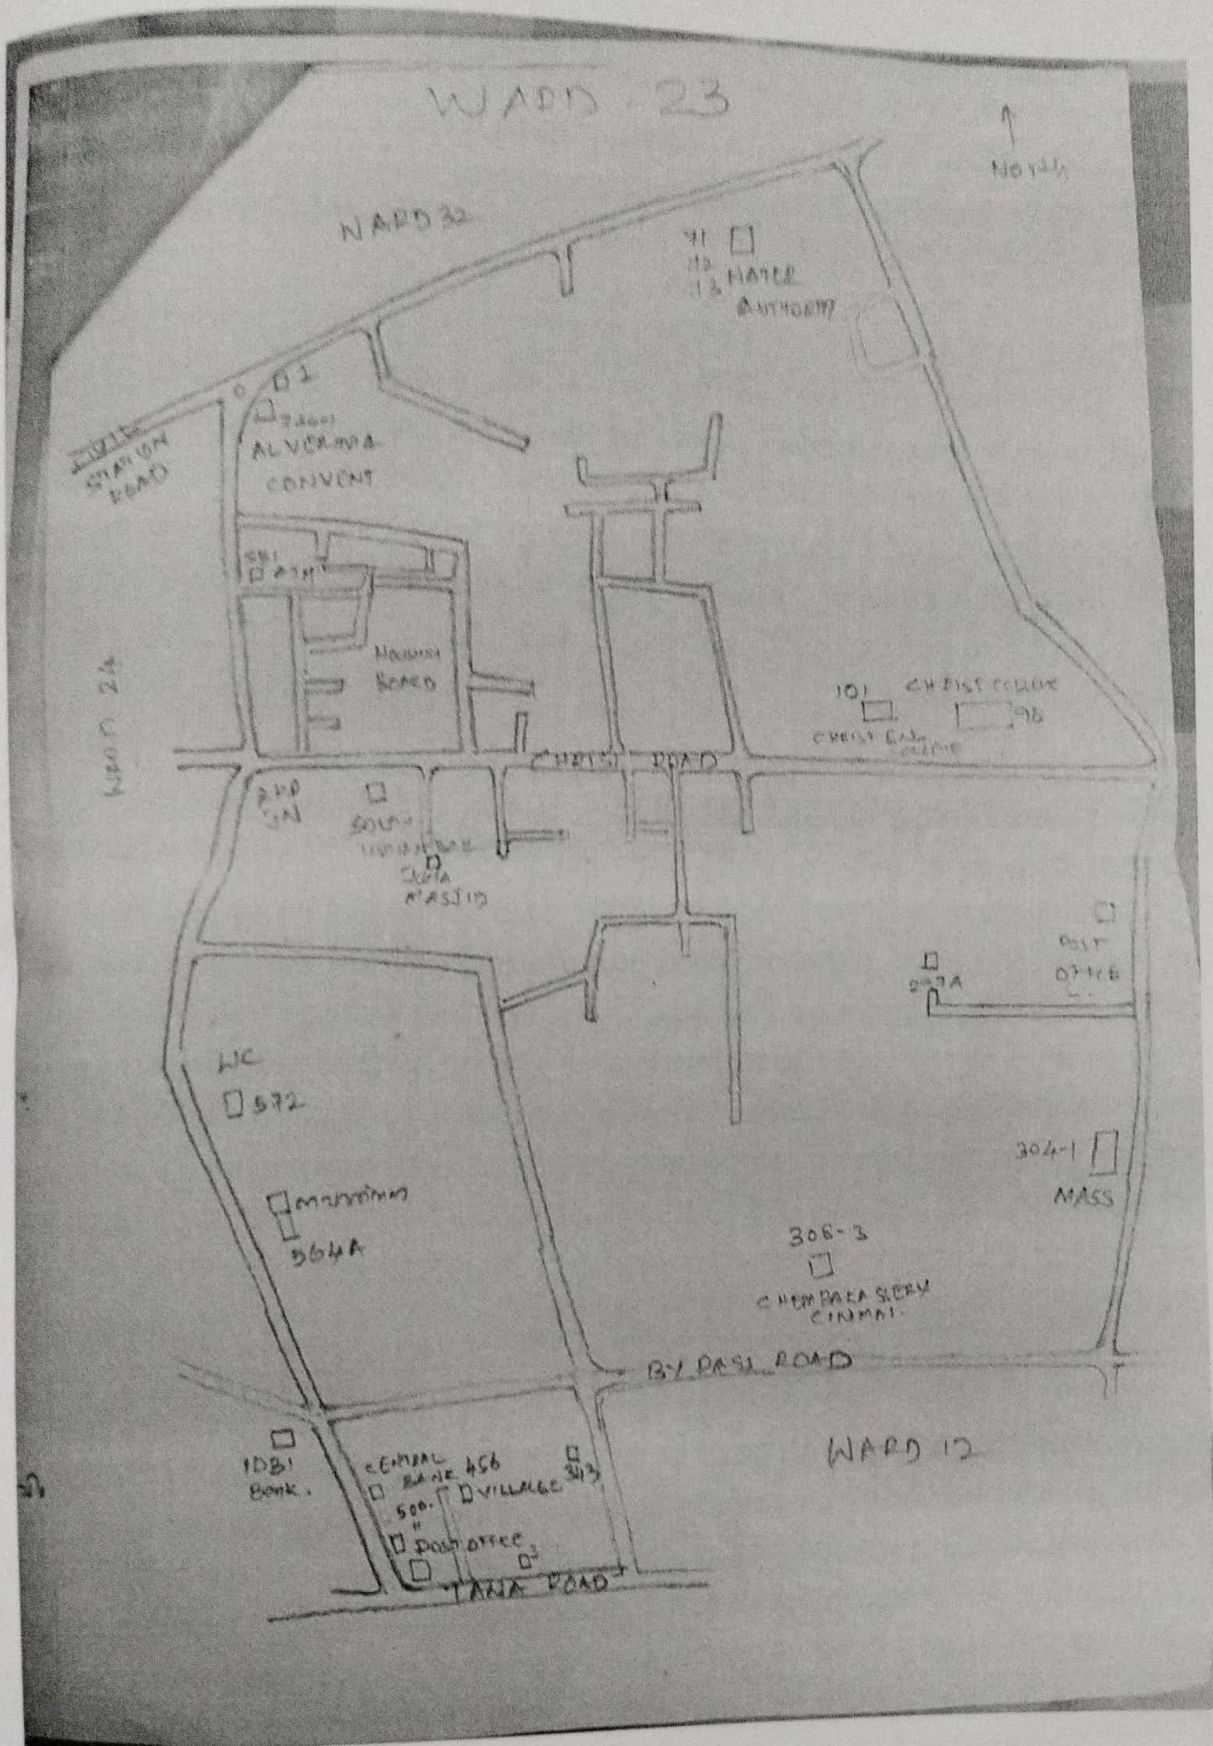 WARD - 23
North
WARD 32
91
92
93
WATER
AUTHORITY
1
STATION
ROAD
ALVERNIA
CONVENT
SBI
ATM
HOUSING
BOARD
WARD 24
101
CHRIST COLLEGE
98
CHRIST ENG
COLLEGE
CHRIST ROAD
AKP
JN
SOUTH
INDIAN BANK
JUMA
MASJID
POST
OFFICE
297A
LIC
572
564A
304-1
MASS
308-3
CHEMBAKASSERY
CINMAS
BY PASS ROAD
WARD 12
IDBI
Bank.
CENTRAL
BANK
456
VILLAGE
343
500
"
POST OFFICE
3
TANA ROAD